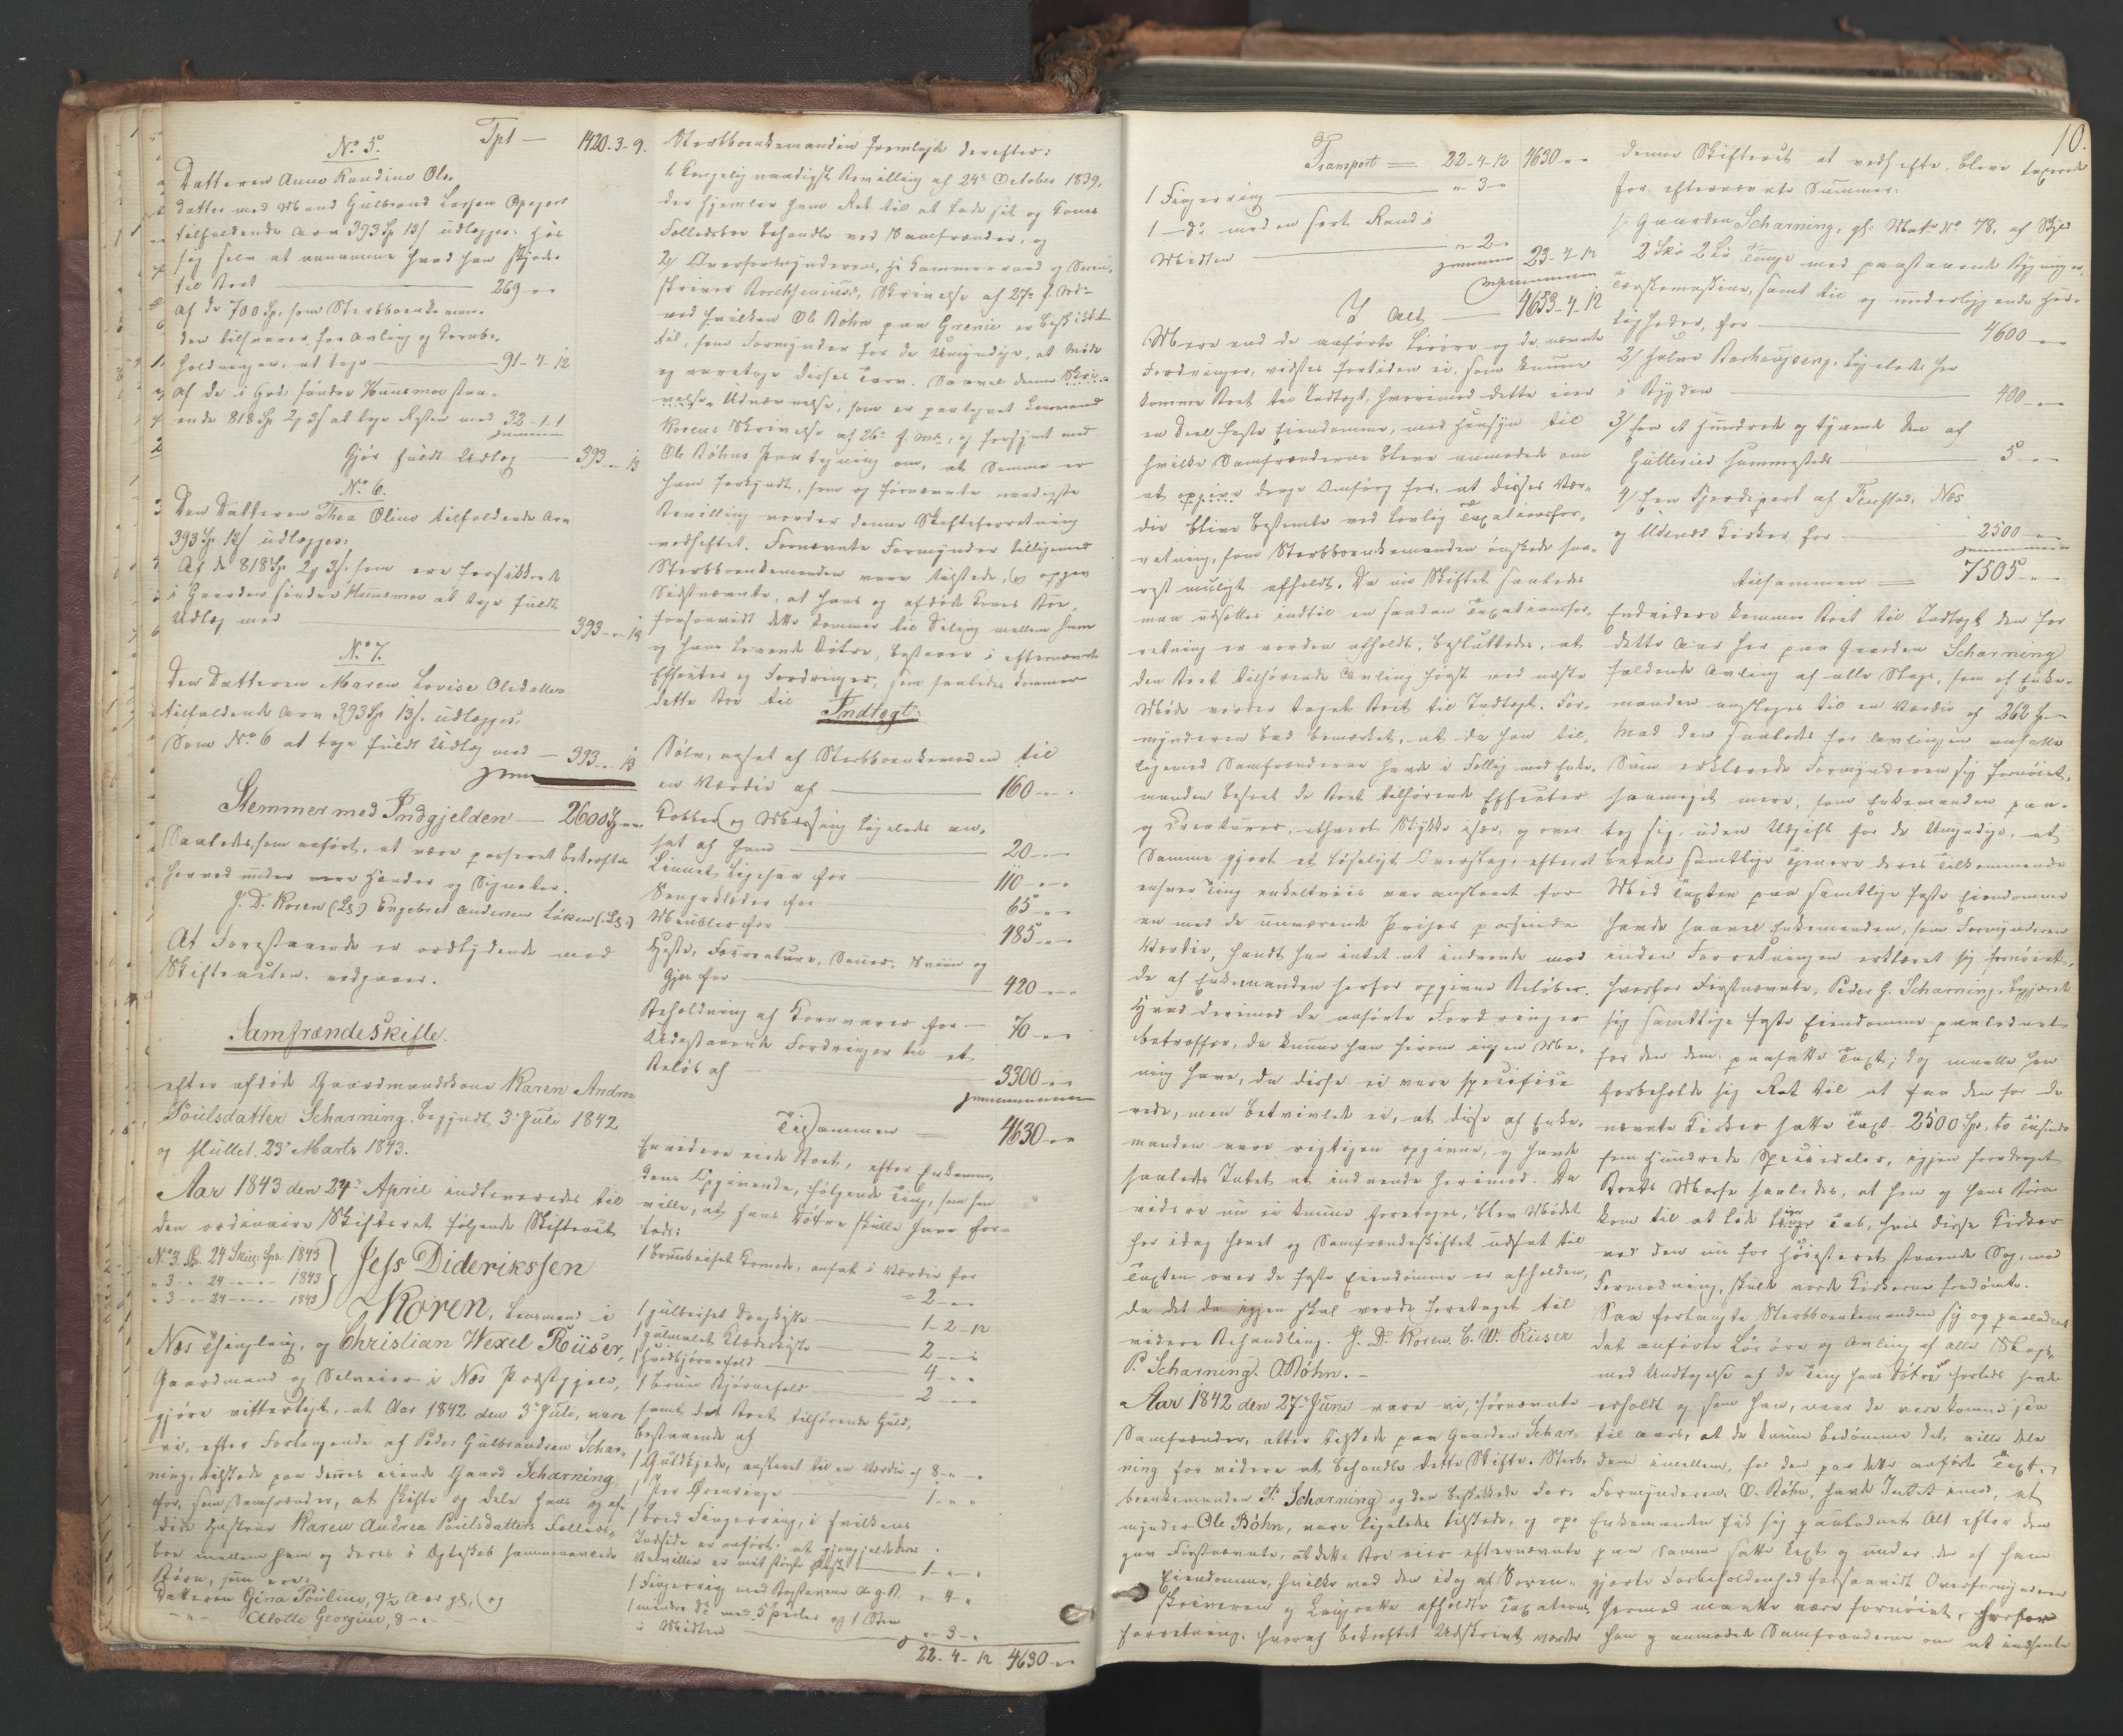 Tpt — 1420-3-9.
No 5.
Datteren Anne Randine Ols-
datter med Mand Gulbrand Larsen
tilfaldende Arv 393 Sp 13 s udlægges: hos
sig selv at annamme hvad han skylder
til Boet — 269 --
af de 700 Sp, som Sterbboenkeman-
den tilsvarer for Avling og Kornbe-
holdninger, at tage — 91-4-12
af de i Gods søndre Huusmoe staa-
ende 818 Sp 2 3 s at tage Resten med 32-1-1
Gjør fuldt Udlæg — 393 - 13
No 6.
Den Datteren Thea Oline tilfaldende Arv
393 Sp 13 s udlægges:
Af de 818 Sp 2 3 s som ere forsikkret
i Gaarden søndre Huusmoe at tage fuldt
Udlæg med — 393 - 13
No 7.
Den Datteren Maren Lovise Olsdatter
tilfaldende Arv 393 Sp 13 s. udlægges:
Som No 6 at tage fuldt Udlæg med — 393 - 13
Stemmer med Indgjelden — 2600 Sp --
Saaledes, som anført, at være passeret bekræftes
herved under vore Hænder og Signeter.
J. D. Koren (L.S.) Engebret Andersen Løken (L.S.)
At Foranstaaende er ordlydende med
Skifteacten, vedgaaer.
Samfrændeskifte
efter afdøde Gaardmandskone Karen Andrea
Poulsdatter Scharning. begyndt 3. Juli 1842
og sluttet 23. Marts 1843.
Aar 1843 den 24. April indleveredes til
den ordinaire Skifteret følgende Skifteact
No 3. 24 Skill. Sp. 1843
" 3 - 24 - - 1843
" 3 - 24 - - 1843
Jess Didericksen
Koren, Lensmand i
Næs Thinglaug, og Christian Wexel Rüser,
Gaardmand og Selveier i Næs Præstegjeld,
gjøre vitterligt, at Aar 1842 den 3. Juli, vare
vi, efter Forlangende af Peder Gulbrandsen Schar-
ning, tilstede paa dennes eiende Gaard Scharning
for, som Samfrænder, at skifte og dele hans og af-
døde Hustrue Karen Andrea Poulsdatters Fælleds-
boe mellem ham og deres i Ægteskab sammenavlede
Børn, som ere:
Datteren Gina Pouline, 9½ Aar gl., og
— " — Alotte Georgine, 8 - " -
Sterbboenkemanden fremlagde derefter:
1. Kongelig naadigst Bevilling af 24. October 1839,
der hjemler ham Ret til at lade sit og Kones
Fælledsboe behandle ved Samfrænder, og
2/ Overformynderens, Hr Kammerraad og Soren-
skriver Skrivelse af 27. f. Md.
ved hvilken Ole Bøhn paa Grenie er beskikket
til, som Formynder for de Umyndige, at møde
og varetage disses Tarv. Saavel denne Skri-
velse, Udnævnelse, som er paategnet Lensmand
Korens Skrivelse af 26. f. Md., og forsynet med
Ole Bøhns Paategning om, at Samme er
ham forkyndt, som og førnævnte naadigste
Bevilling vorder denne Skifteforretning
vedheftet. Fornævnte Formynder tilligemed
Sterbboenkemanden vare tilstede, og opgav
Sidstnævnte, at hans og afdøde Kones Boe,
forsaavidt dette kommer til Deling mellem ham
og hans levende Døtre, bestaaer i efternævnte
Effecter og Fordringer, som saaledes kommer
dette Boe til
Indtægt:
Sølv, ansat af Sterbboenkemanden til
en Værdie af — 160 - -
Kobber og Messing ligeledes an-
sat af ham — 20 - -
Linnet ligesaa for — 110 - -
Sengeklæder for — 65 - -
Meubler for — 485 - -
Heste, Fæecreature, Sauer, Sviin og
Gjes for — 420 - -
Beholdning af Kornvarer for — 70 - -
Udestaaende Fordringer til et
Beløb af — 3300 - -
Tilsammen — 4630 - -
Envidere eiede Boet, efter Enkeman-
dens Opgivende, følgende Ting, som han
ville, at hans Døtre skulle have for-
lods:
1 bruunbeiset Komode, ansat i Værdie for
— 2 - -
1 guulbeiset Dragkiste — 1-2-12
1 guulmalet Klædeskiste — 2 - -
1 hvid Bjørnefeld — 4 - -
1 bruun Bjørnefeld — 2 - -
samt det Boet tilhørende Guld,
bestaaende af
1 Guldkjæde, ansat til en Værdie af 8 - -
1 Par Øreringe — 1 - -
1 bred Fingerring, i hvilkens
Indside er anført: at gjengjelde din
Velvillie er mit største Ønske — 1 - -
1 Fingerring med Bogstaverne A. G. P. " 4 "
1 mindre do med 5 Perler og 1 Steen
i Midten — " 3 -
22-4-12 4630 --
10.
Transport = 22-4-12 4630 --
1 Fingerring — " 3 -
1 — do med en sort Rand i
Midten — " 2 - 23-4-12
I alt — 4653-4-12
Mere end de anførte Løsøre og de nævnte
Fordringer, vidstes fortiden ei, som kunne
komme Boet til Indtægt, hvorimod dette eier
en Deel faste Eiendomme, med Hensyn til
hvilke Samfrænderne bleve anmodede om
at opgive drage Omsorg for, at disses Vær-
die blive bestemte ved lovlig Taxationsfor-
retning, som Sterbboenkemanden ønskede sna-
rest muligt afholdt. Da nu Skiftet saaledes
maa udsættes indtil en saadan Taxationsfor-
retning er vorden afholdt, besluttedes, at
den Boet tilhørende Avling først ved næste
Møde vorder taget Boet til Indtægt. For-
mynderen bad bemærket, at da han til-
ligemed Samfrænderne havde i Følge med Enke-
manden beseet de Boet tilhørende Effecter
og Creaturer, ethvert Stykke især, og over
Samme gjort et løseligt Overslag, efterat
enhver Ting enkeltviis var anslaaet for
en med de nuværende Priser passende
Værdie, fandt han intet at indvende mod
de af Enkemanden herfor opgivne Beløber.
Hvad derimod de anførte Fordringer
betræffer, da kunne han herom ingen Me-
ning have, da disse ei vare specifice-
rede, men betvivlede ei, at disse af Enke-
manden vare rigtigen opgivne, og havde
saaledes Intet at indvende herimod. Da
videre nu ei kunne foretages, blev Mødet
for idag hævet og Samfrændeskiftet udsat til
Taxten over de faste Eiendomme er afholden,
da det da igjen skal vorde foretaget til
videre Behandling. J. D. Koren. C. W. Rüser
P. Scharning. O Bøhn. -
Aar 1842 den 27. Juni vare vi, førnævnte
Samfrænder, atter tilstede paa Gaarden Schar-
ning for videre at behandle dette Skifte. Sterb-
boenkemanden P. Scharning og den beskikkede For-
mynder Ole Bøhn, vare ligeledes tilstede, og op-
gav Førstnævnte, at dette Boe eier efternævnte
Eiendomme, hvilke ved den idag af Soren-
skriveren og Laugrette afholdte Taxations-
forretning, hvoraf bekræftet Udskrivt vorder
denne Skifteact at vedhefte, bleve taxerede
for efternævnte Summer:
1/ Gaarden Scharning, gl. Mat. No 78, af Skyld
2 Skd 2 Lø Tunge med paastaaende Bygninger,
Tærskemaskine, samt til og underliggende Her-
ligheder, for — 4600 - -
2/ halve Barhougseng, ligeledes her
i Bygden — 400 - -
3/ Een et Hundrede og tyvende Deel af
Gulleried sammesteds — 5 - -
4/ Een Fjerdepart af Fenstad, Næs
og Udenæs Kirker for — 2500 - -
tilsammen = 7505 - -
Endvidere kommer Boet til Indtægt den for
dette Aar her paa Gaarden Scharning
faldende Avling af alle Slags, som af Enke-
manden ansloges til en Værdie af 262 Sp
Med den saaledes for Avlingen ansatte
Sum erklærede Formynderen sig fornøiet,
saameget mere, som Enkemanden paa-
tog sig, uden Udgift for de Umyndige, at
betale samtlige Tjenere deres Tilkommende
Med Taxten paa samtlige faste Eiendomme
havde saavel Enkemanden, som Formynderen
inden Forretningen erklæret sig fornøiet,
hvorfor Førstnævnte, Peder G. Scharning, begjærede
sig samtlige faste Eiendomme paalodnet
for den dem paasatte Taxt; dog maatte han
forbeholde sig Ret til at faa den for de
nævnte Kirker satte Taxt 2500 Sp, to Tusinde
fem Hundrede Speciedaler, igjen fradraget
Boets Masse saaledes, at han og hans Børn
kom til at lide lige Tab, hvis disse Kirker
ved den nu for Høiesteret staaende Sag, mod
Formodning, skulde vorde Kirkerne fradømte.
Saa forlangte Sterbboenkemanden sig og paalodnet
det anførte Løsøre og Avling af alle Slags,
med Undtagelse af de Ting hans Døtre forlods havde
erholdt og som han, naar de vare komne saa
til Aars, at de kunne bedømme det, ville dele
dem imellem, for den paa dette anførte Taxt.
Formynderen, O. Bøhn, havde Intet imod, at
Enkemanden fik sig paalodnet Alt efter den
paa samme satte Taxt og under den af ham
gjorte Forbeholdenhed forsaavidt Overformynderen
hermed maatte være fornøiet, hvorfor
han og anmodede Samfrænderne om at indhente